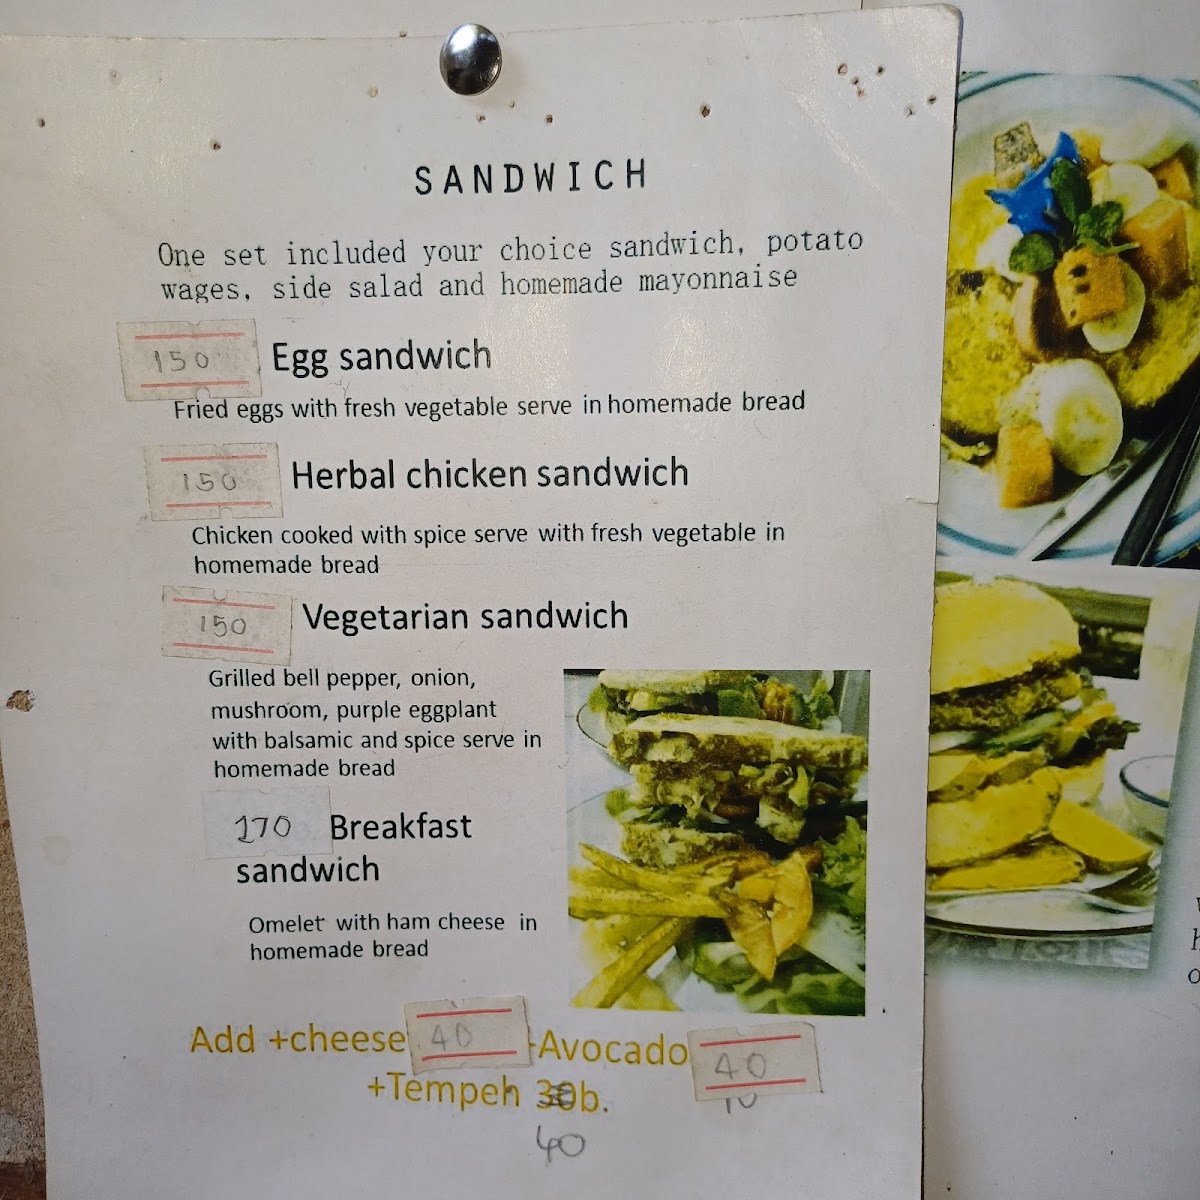 SANDWICH
One set included your choice sandwich, potato
wages, side salad and homemade mayonnaise
150 Egg sandwich
Fried eggs with fresh vegetable serve in homemade bread
150 Herbal chicken sandwich
Chicken cooked with spice serve with fresh vegetable in
homemade bread
150 Vegetarian sandwich
Grilled bell pepper, onion,
mushroom, purple eggplant
with balsamic and spice serve in
homemade bread
170 Breakfast
sandwich
Omelet with ham cheese in
homemade bread
Add +cheese 40 +Avocado 40
+Tempeh 30b.
40